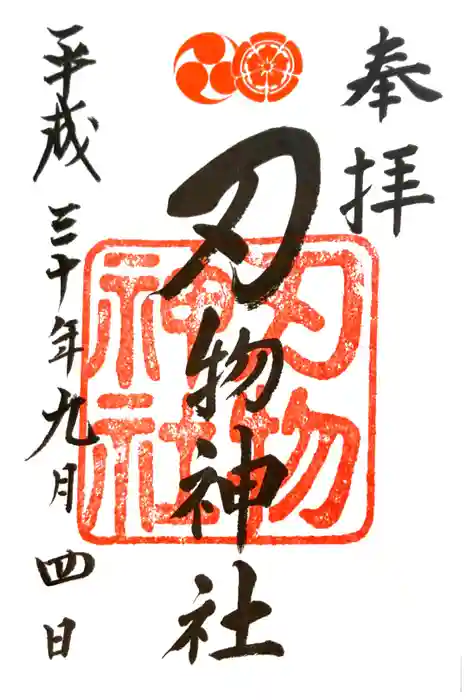 奉拝
刃物神社
刃物
神社
平成三十年九月四日